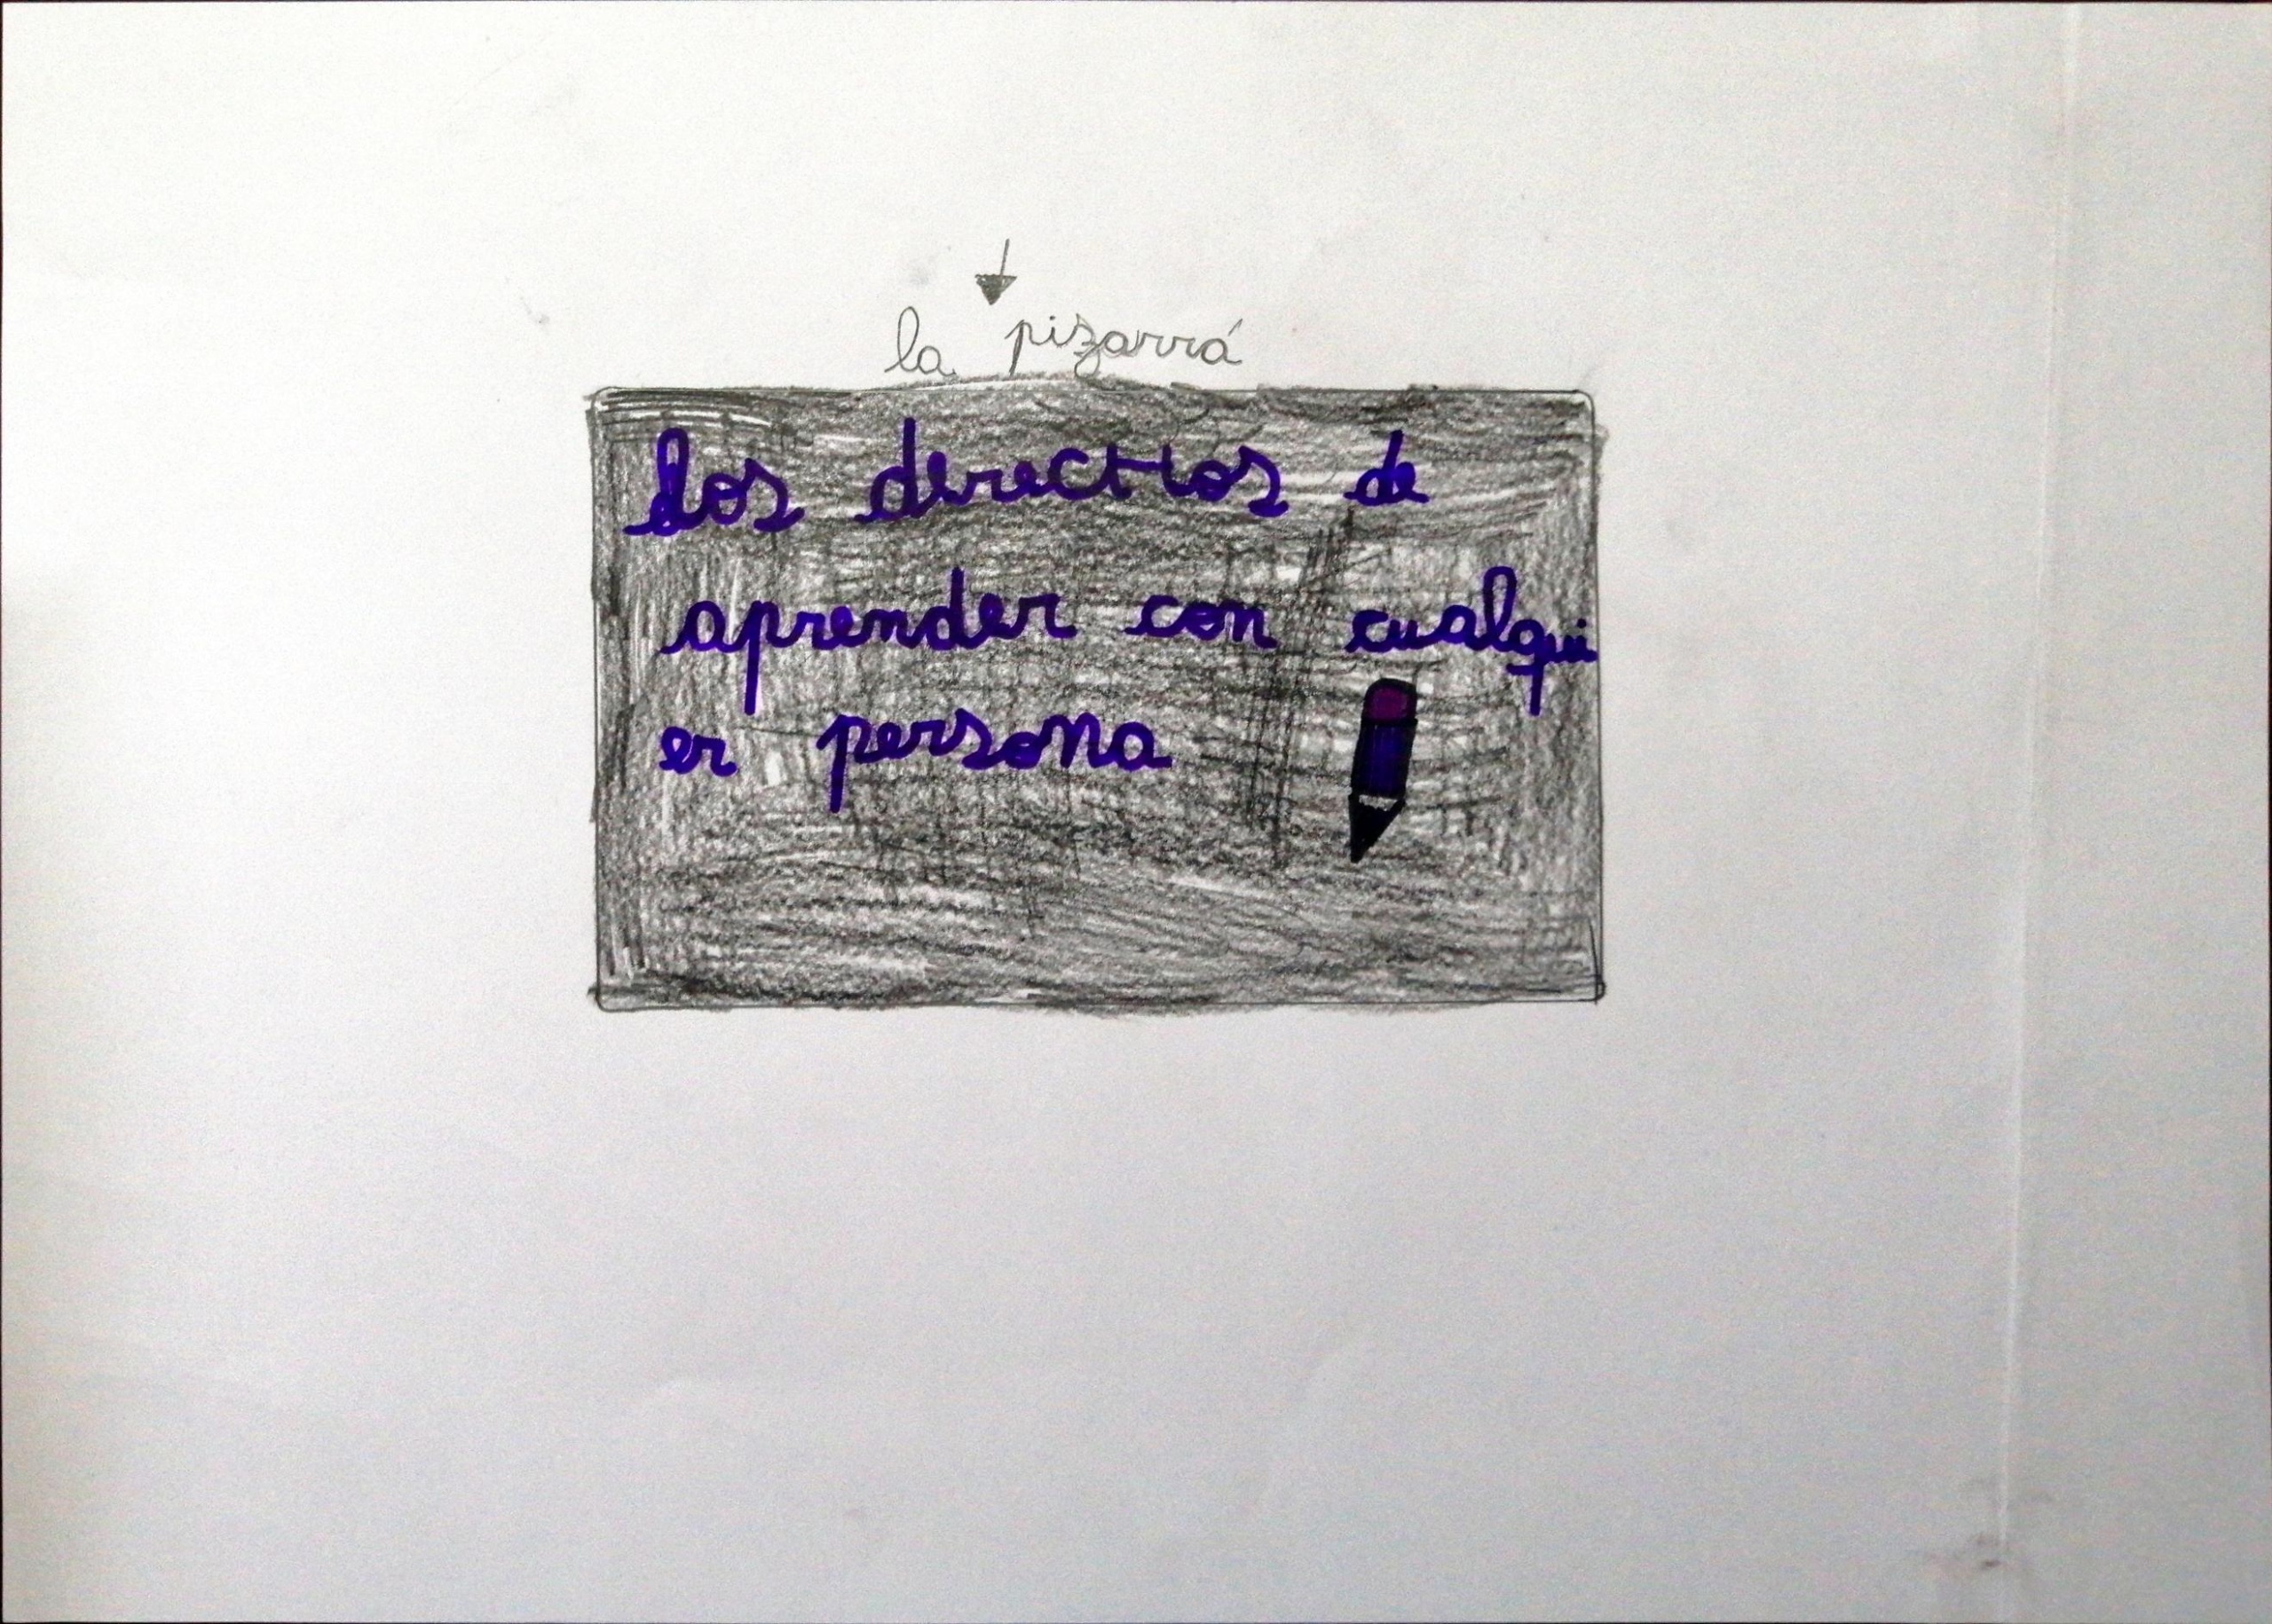 la pizarrá
los derechos de
aprender con cualqui
er persona